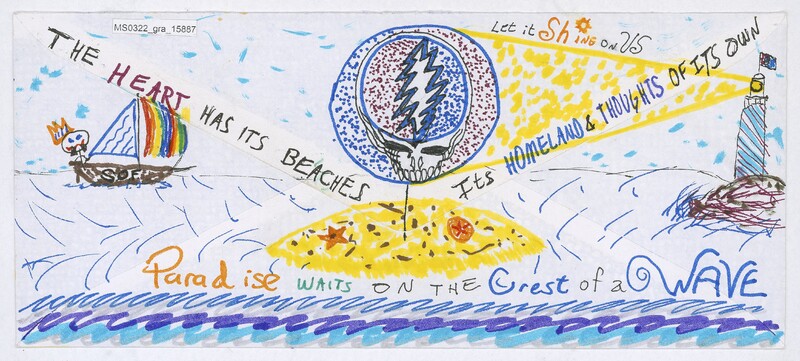 MS0322_gra_15887
Let it Shine on US
THE HEART HAS ITS BEACHES
Its HOMELAND & THOUGHTS OF ITS OWN
SDF
Paradise WAITS ON THE Crest of a WAVE